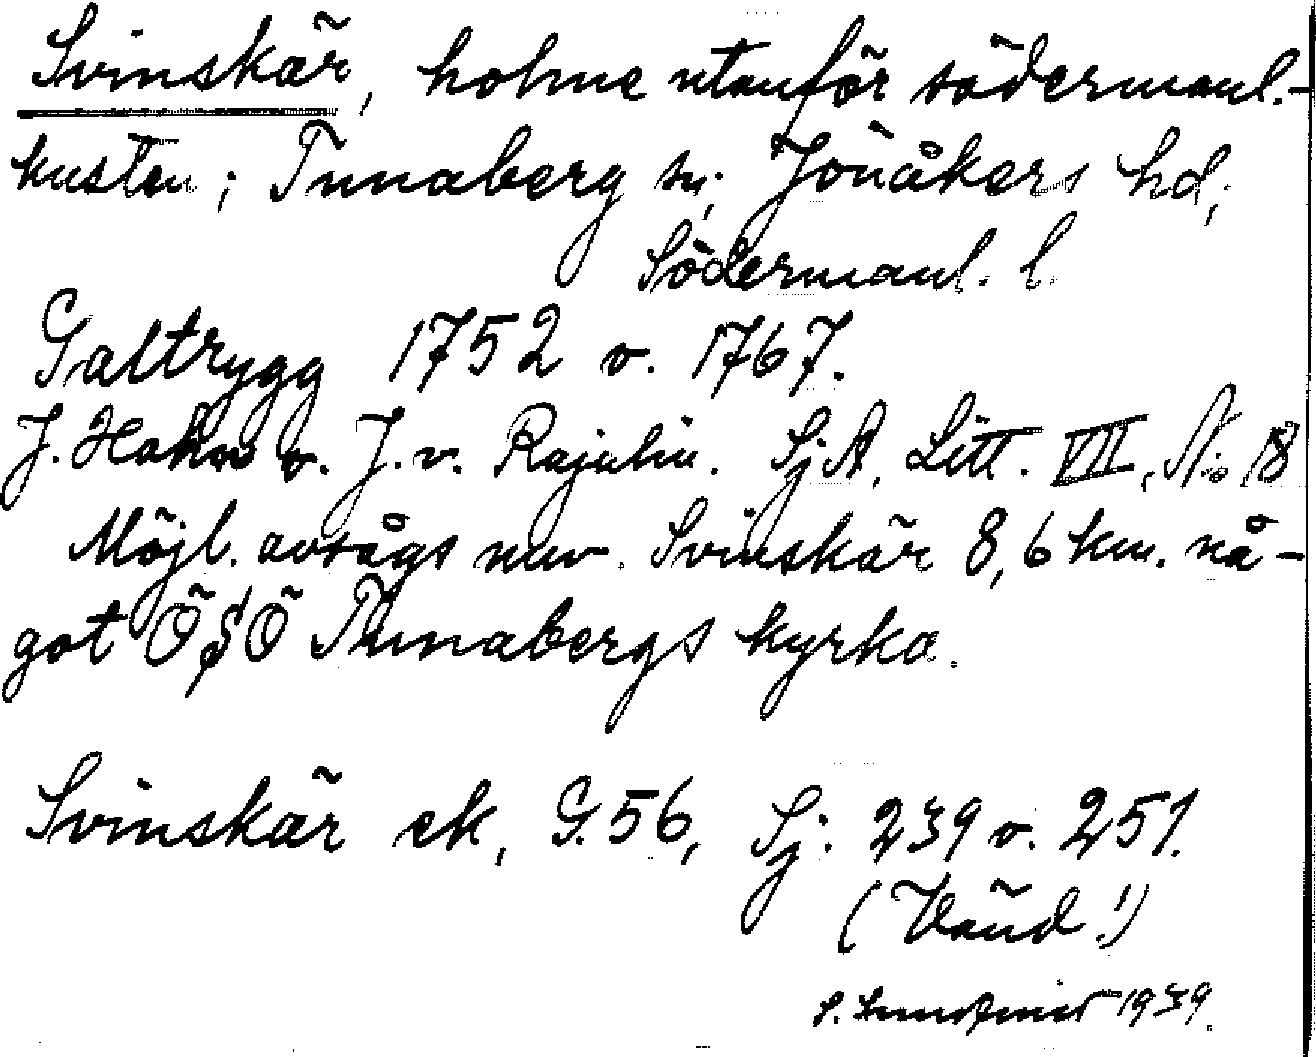 Svinskär, holme utanför södermanl.-
kusten; Tunaberg sn; Jönåkers hd;
Södermanl. l.
Galtrygg 1752 o. 1767.
J. Hahn o. J. v. Rajalin. SjA, Litt. VII, No 18
Möjl. avsågs nuv. Svinskär 8,6 km. nå-
got ÖSÖ Tunabergs kyrka.
Svinskär ek, G. 56, Sj. 239 o. 251.
(Vänd!)
1939.